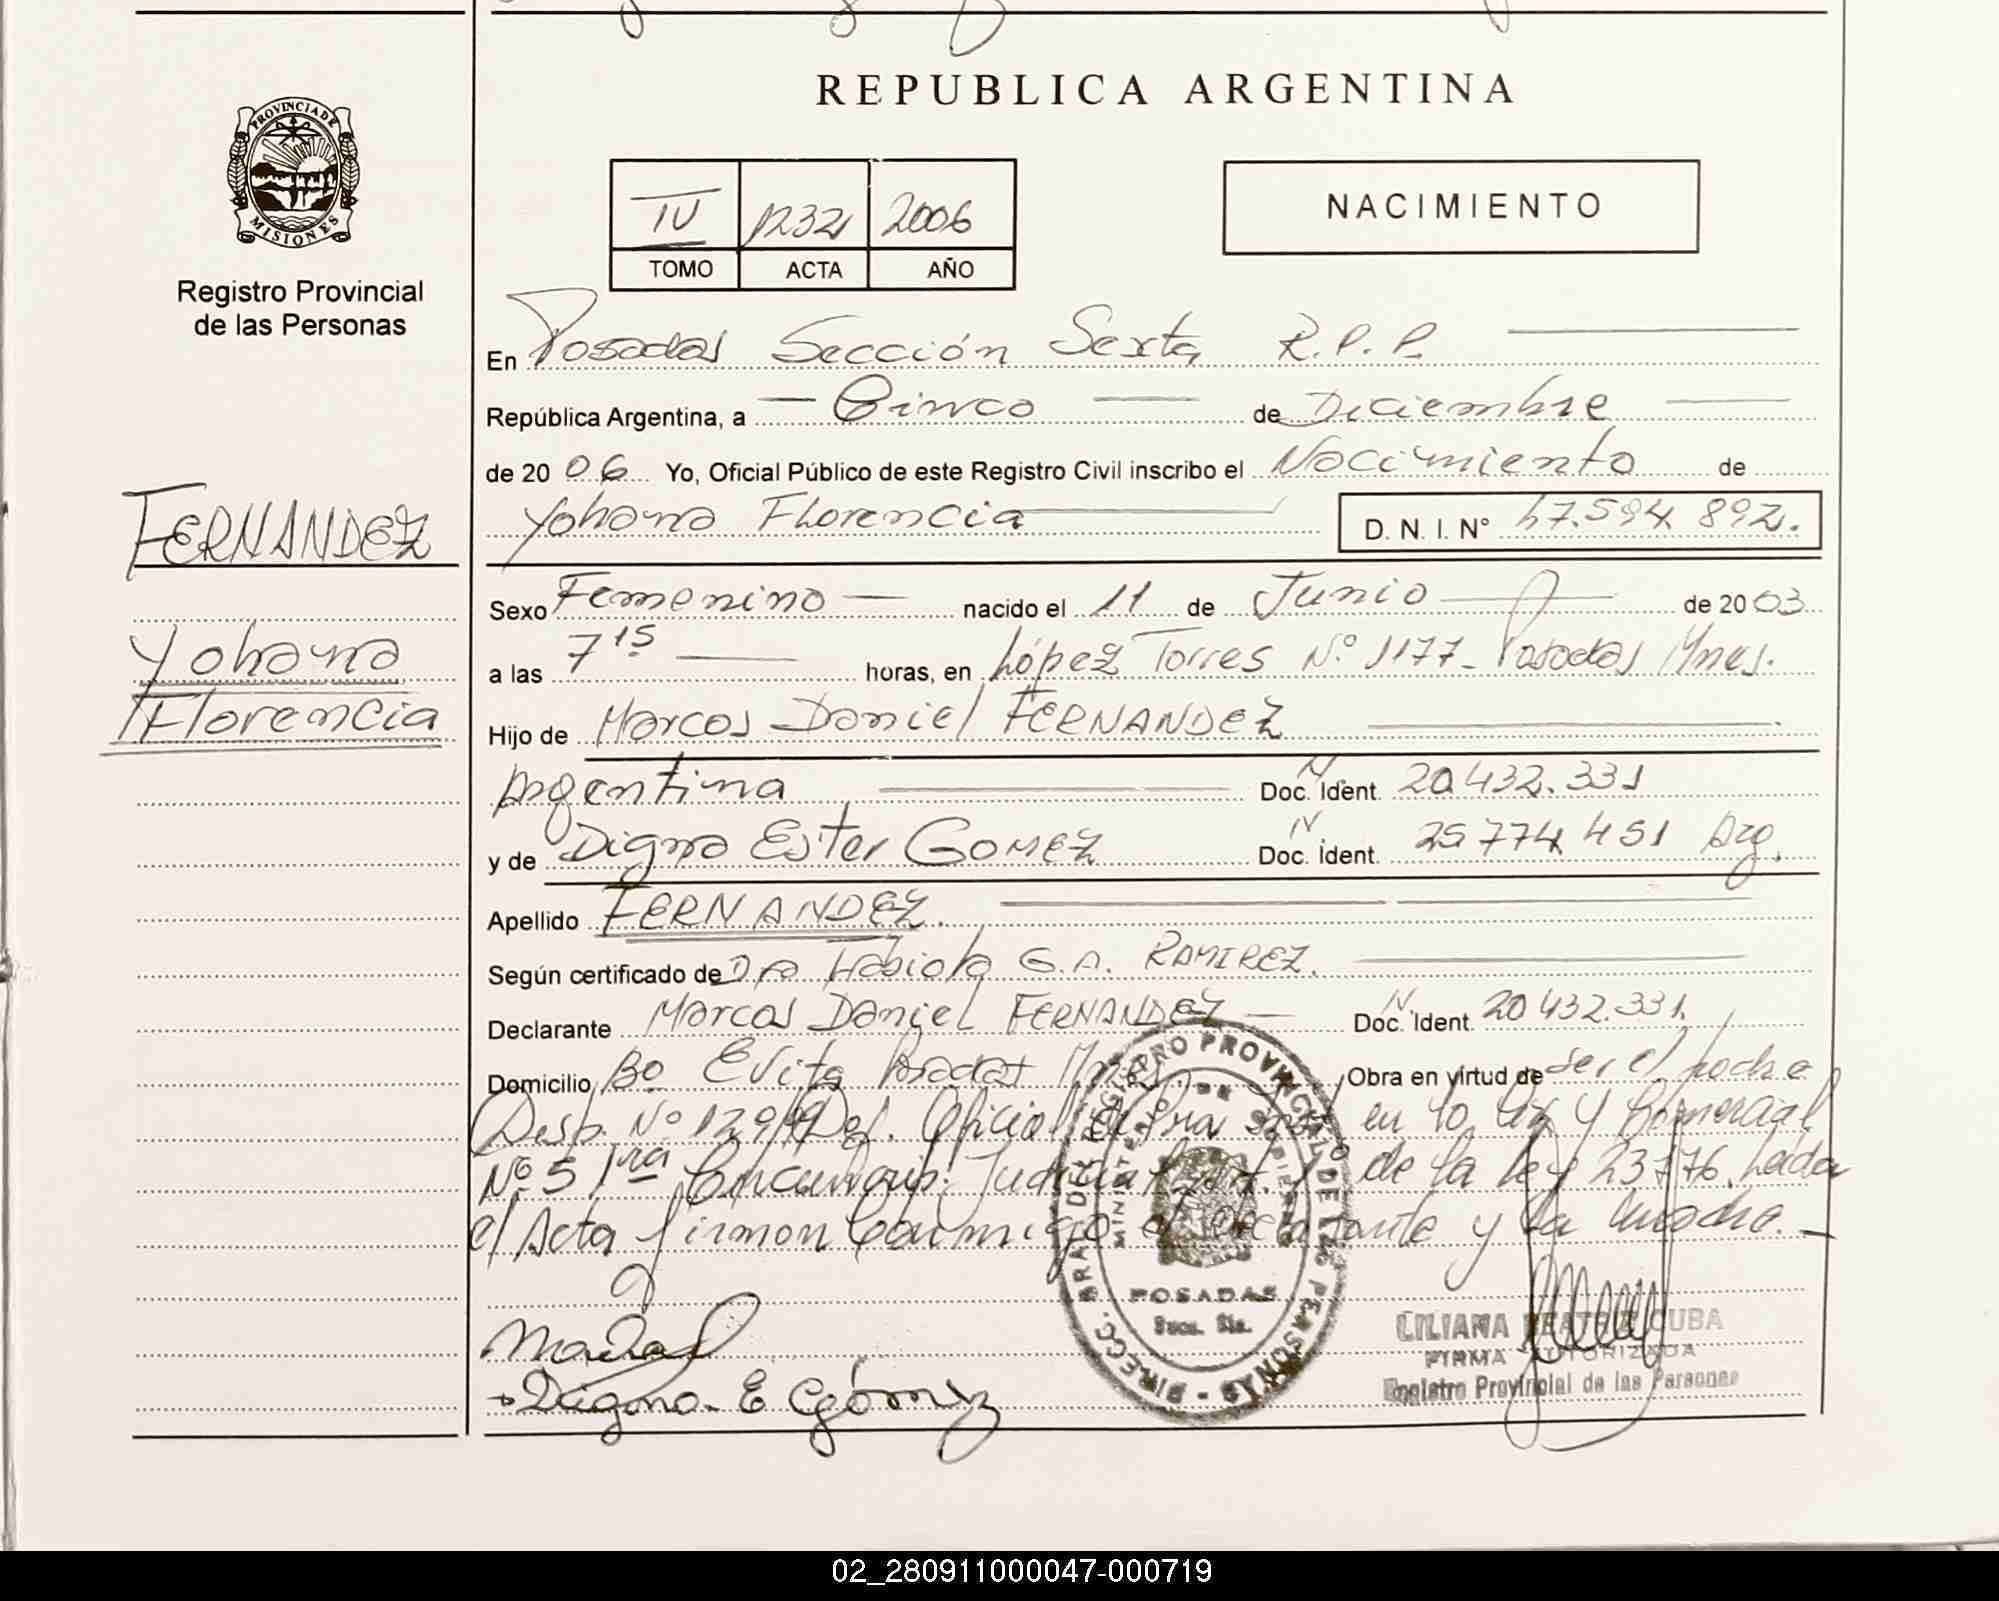 REPUBLICA ARGENTINA
PROVINCIA DE
MISIONES
Registro Provincial
de las Personas
IV 1232 2006
TOMO ACTA AÑO
NACIMIENTO
En Posadas Sección Sexta R.P.P.
República Argentina, a Cinco de Diciembre
de 2006 Yo, Oficial Público de este Registro Civil inscribo el Nacimiento de
Yohana Florencia D. N. I. N° 47.594 892.
FERNANDEZ
Yohana
Florencia
Sexo Femenino nacido el 11 de Junio de 2003
a las 7 15 horas, en López Torres N.º 1177 - Posadas Mnes.
Hijo de Marcos Daniel FERNANDEZ
Argentina Doc. Ident. N 20.432.331
y de Digna Ester GOMEZ Doc. Ident. N. 25 774 451 Arg.
Apellido FERNANDEZ.
Según certificado de Dra Fabiola G.A. RAMIREZ.
Declarante Marcos Daniel FERNANDEZ Doc. Ident. N 20 432.331.
Domicilio Bº Evita Posadas Mnes. Obra en virtud de ser el padre
Desp. Nº Def. Oficial en lo Civ y Comercial
Nº 5 1ra Judicial de la ley 23776. Leída
el Acta firman conmigo el declarante y la madre.
DIRECC. GRAL DEL REGISTRO PROVINCIAL DE LAS PERSONAS
MINISTERIO DE GOBIERNO
POSADAS
Digna E Gómez
LILIANA BEATRIZ CUBA
FIRMA AUTORIZADA
Registro Provincial de las Personas
02_280911000047-000719